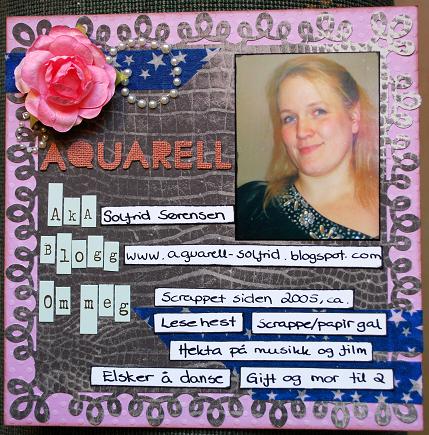 AQUARELL
AkA Solfrid Sørensen
Blogg www.aquarell-solfrid.blogspot.com
Om meg
Scrappet siden 2005, ca.
Lesehest Scrappe/papirgal
Hekta på musikk og film
Elsker å danse Gift og mor til 2